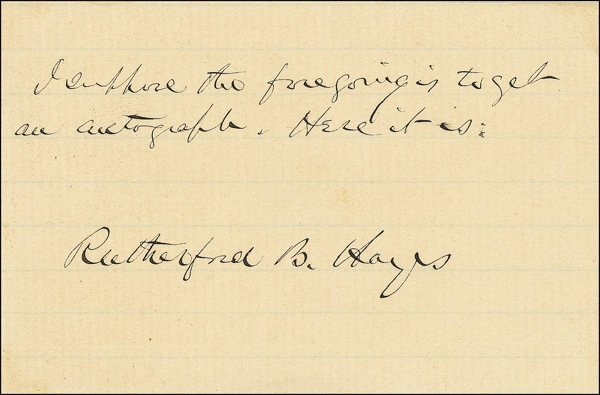 I suppose the foregoing is to get
an autograph. Here it is:
Rutherford B. Hayes